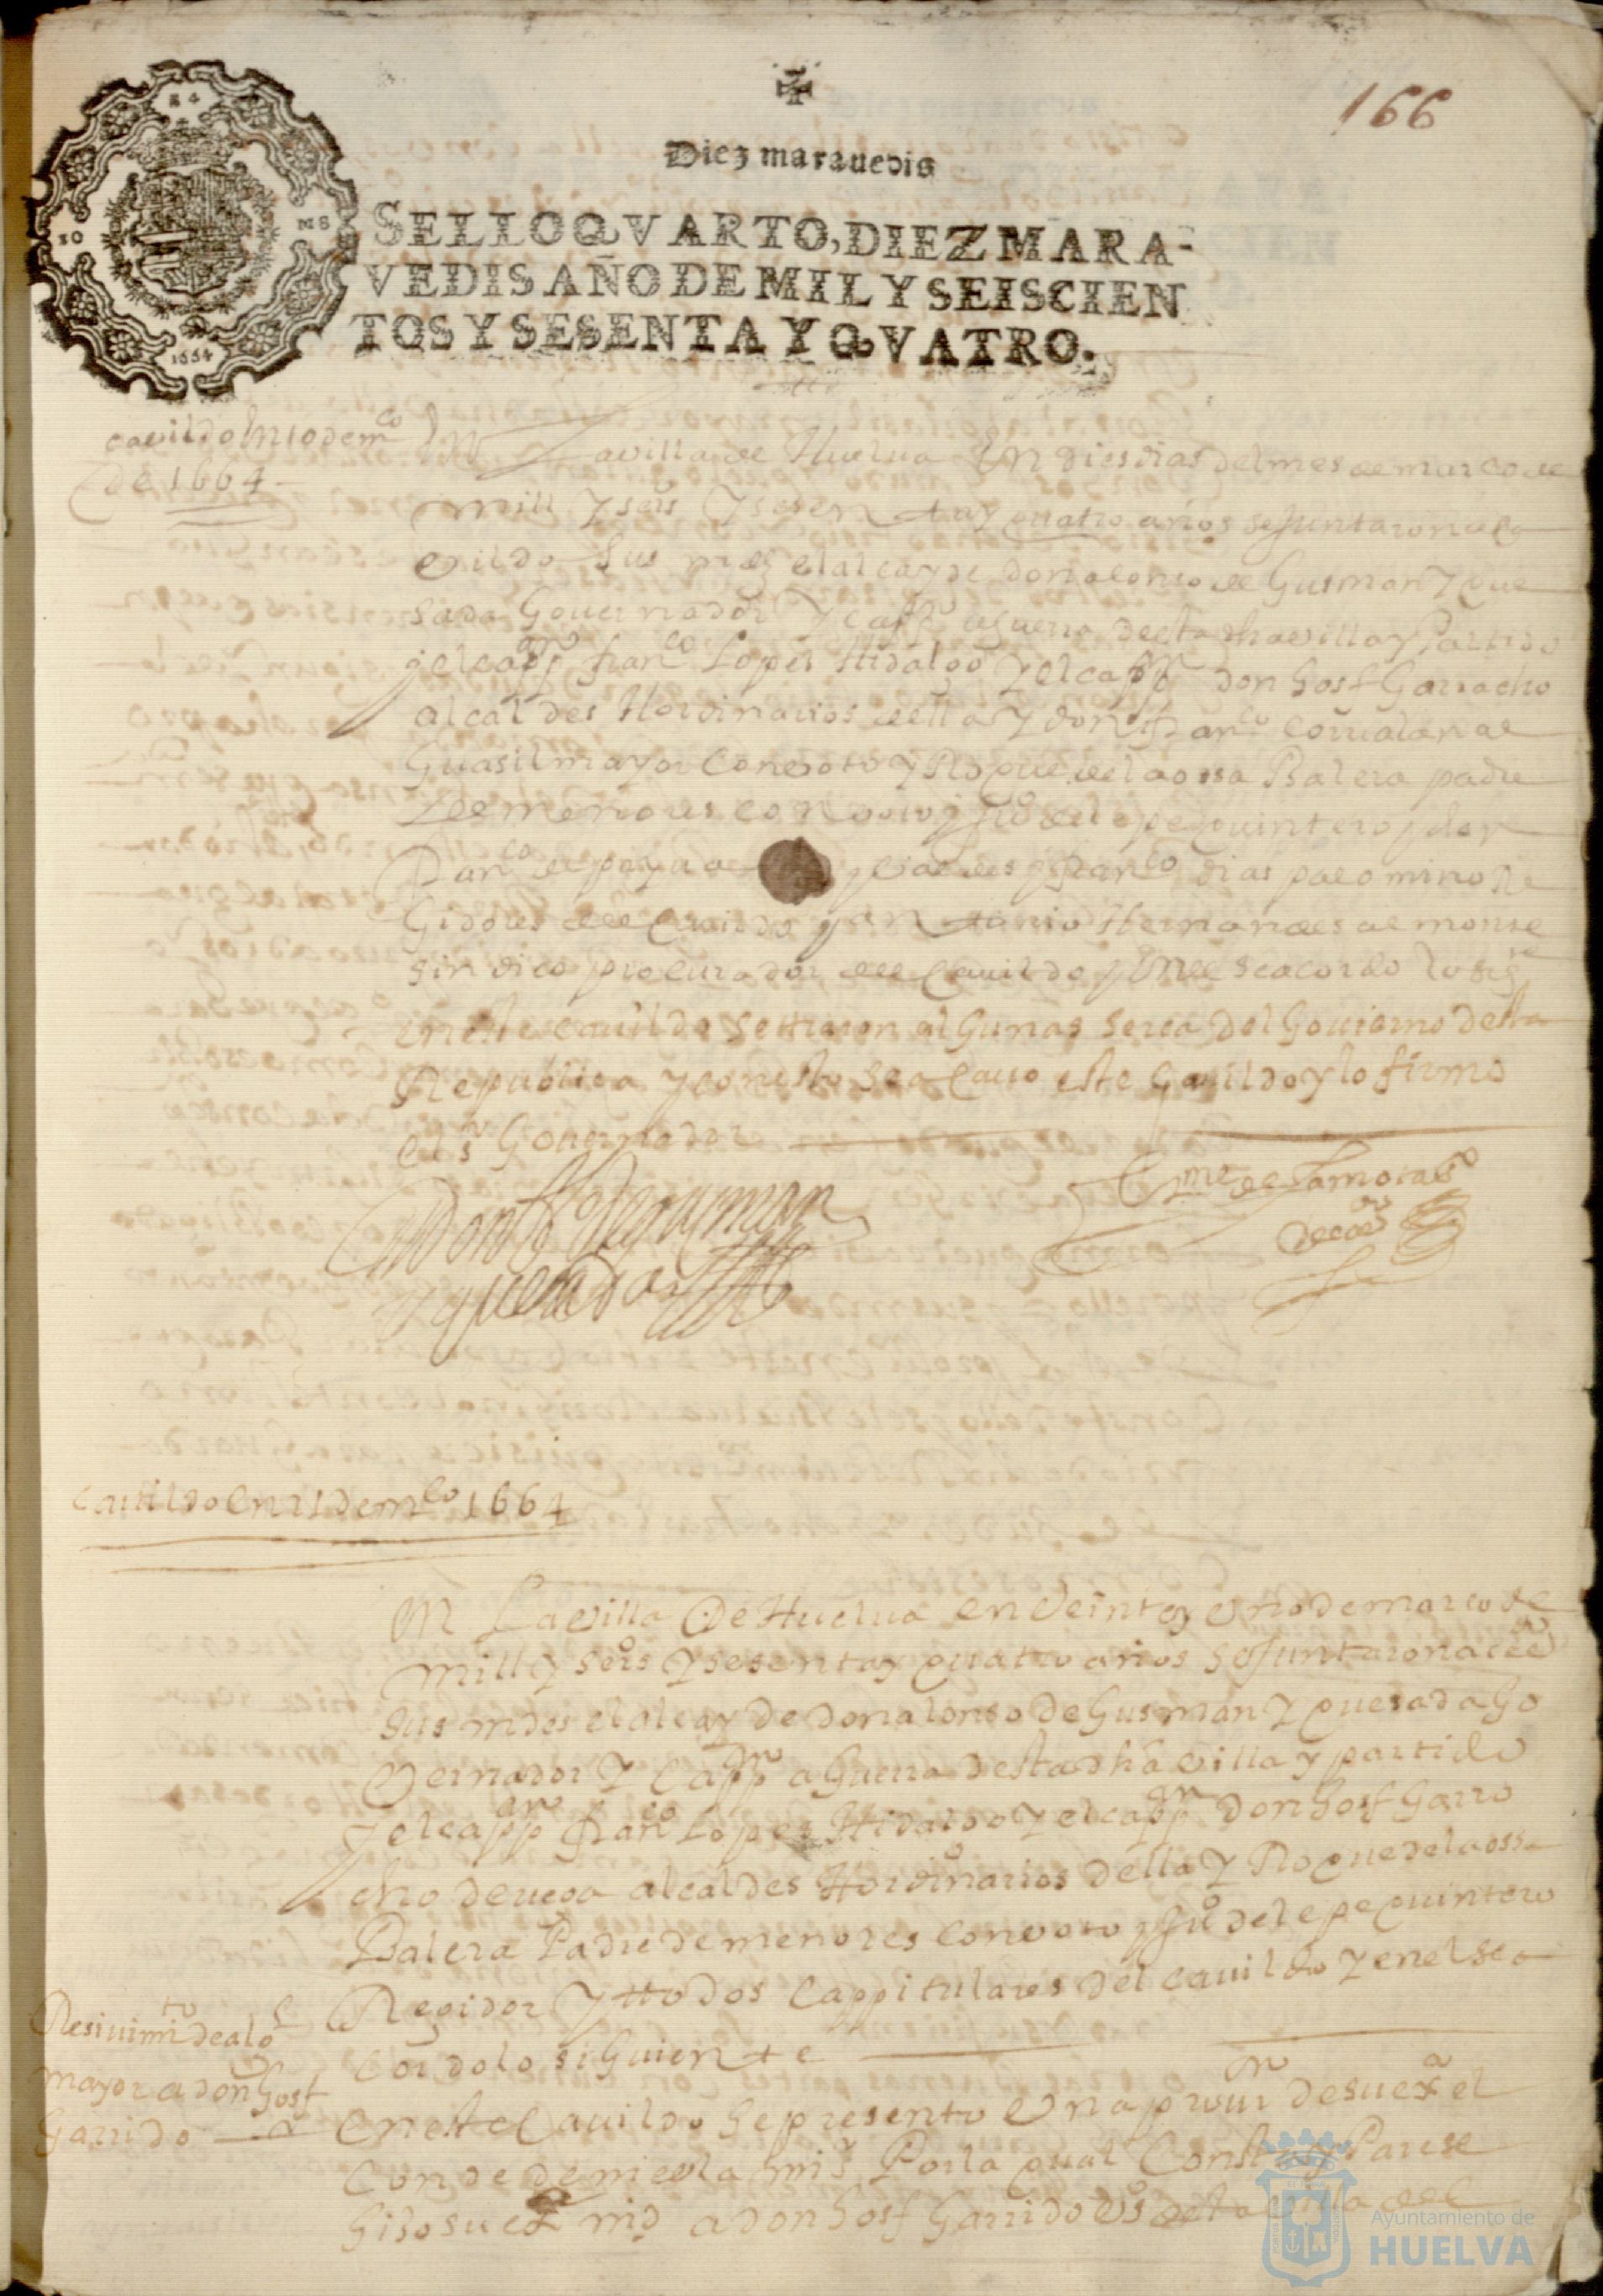 166
Diez marauedis
SELLO QVARTO, DIEZ MARA-
VEDIS AÑO DE MIL Y SEISCIEN
TOS Y SESENTA Y QVATRO.
1664
cavildo En 10 de mco
de 1664
En La villa de Huelua En dies dias del mes de março de
mill y seis y sesentta y quatro años se Juntaron a ca
vildo sus mds el alcayde don alonso de Gusman y que
sada Gouernador y Cappn a guerra desta dha villa y Partido
y el cappn Franco Lopes Hidalgo y el cappn don Josf Garrocho
alcaldes Hordinarios della y don Franco al
Guasil mayor con voto y Roque de la ossa Balera padre
de menores con voto y Juo de lepe quintero y don
Franco de y Franco dias palomino Re
Gidores del Cauildo y Antonio Hernandes de
sindico procurador del Cauildo y en el se acordo lo sigte
en este cauildo se ttrataron alGunas Del Gouierno desta
Republica y con esto se acauo este Cauildo y lo firmo
el sr Gouernador
Don Alo de guzman
y quesada
Cavildo En 21 de mco 1664
En La villa De Huelua en veinte y uno de março de
mill y seis y sesenta y quatro años se Juntaron a
sus mdes el alcayde don alonso de Gusman y quesada Go
vernador y Cappn a Guerra desta dha villa y partido
y el cappn Franco Lopes Hidalgo y el cappn Don Josf Garro
cho de uega alcaldes Hordinarios della y Roque de la ossa
Balera Padre de menores con voto y Juo de lepe quintero
Regidor y ttodos Cappitulares del cauildo y en el se a
cordo lo siguiente
Resiuimito de alg
mayor a don Josf
Garrido
En este Cauildo se presento Una prouin de su exa el
Conde de niebla mi sr Por la qual Consta y Parese
hiso su exa md a don Josf Garrido vo desta villa del
Ayuntamiento de
HUELVA